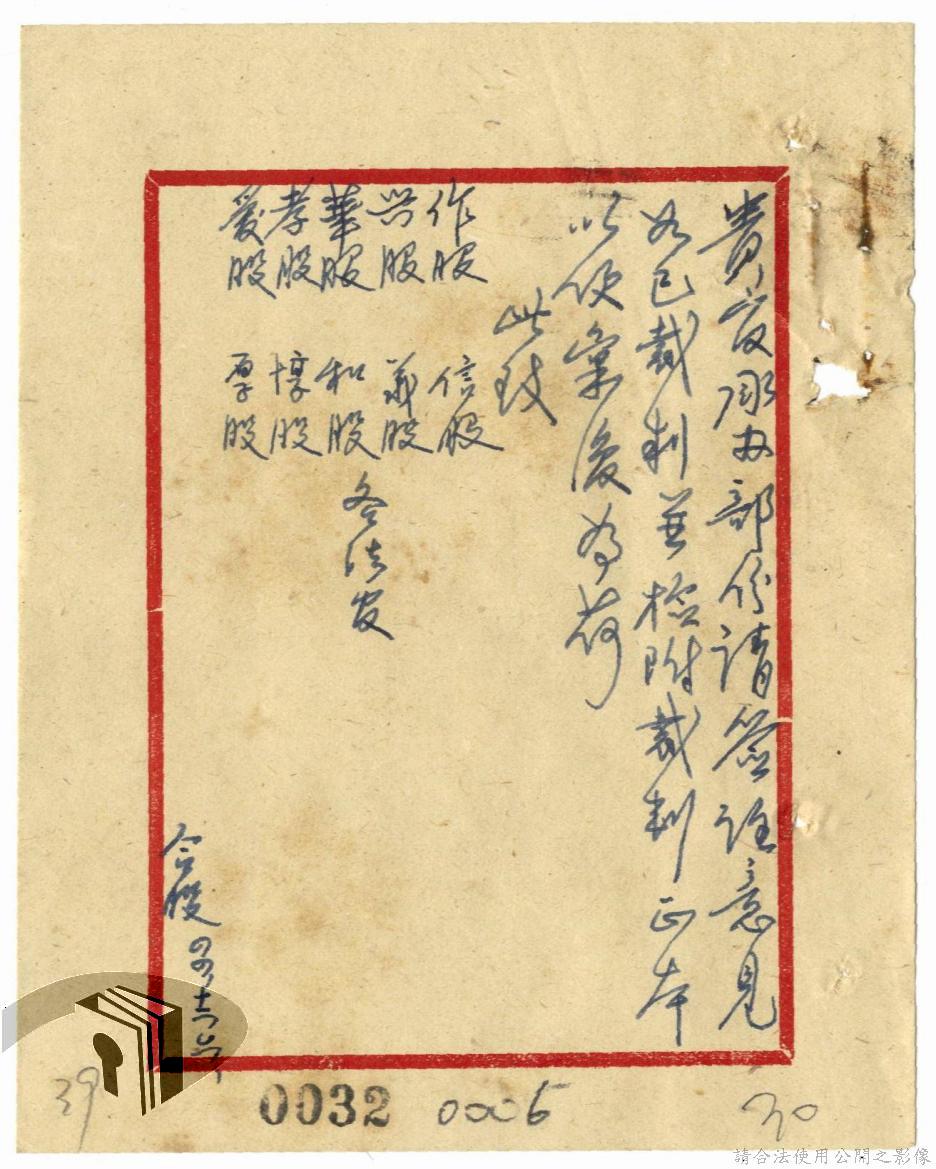 貴股承办部份請簽註意見
如已裁判並檢附裁判正本
以便彙復為荷
此致
作股 信股
兴股 義股
華股 和股
孝股 惇股
爱股 厚股
各法官
合股
0032 0006
39
30
請合法使用公開之影像